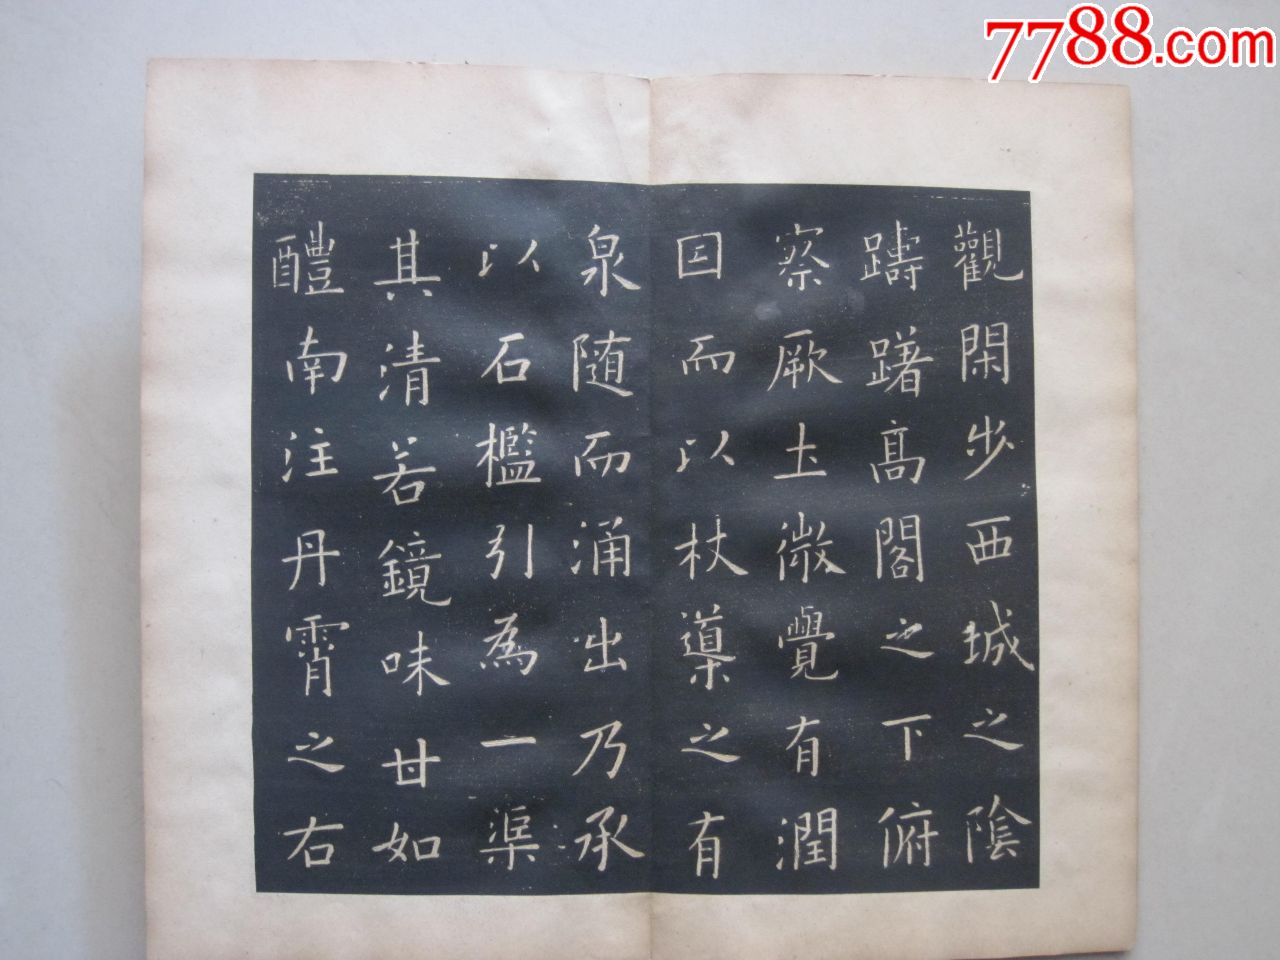 7788.com
觀閑步西城之陰
躊躇高閣之下俯
察厥土微覺有潤
因而以杖導之有
泉随而涌出乃承
以石檻引為一渠
其清若鏡味甘如
醴南注丹霄之右